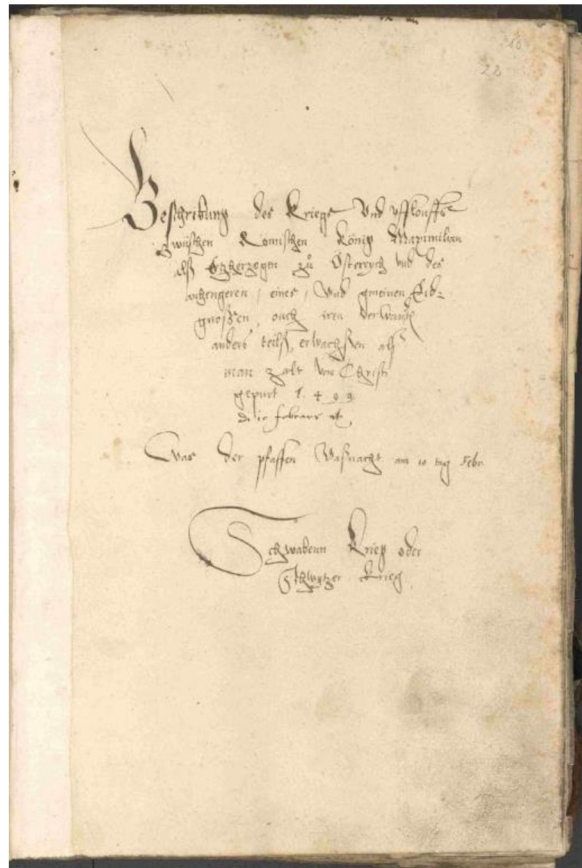 22
Beschribung des Kriegs Vnd vfflouffs
zwüschen Römischen König Maximilian
alß Ertzherzogen zů Österrych vnd des
anhengeren, eines, Vnd gmeinen Eid-
gnoßen, ouch iren verwandt
anders teilß, erwachsen alß
man zalt von Christi
gepurt 1.4.9.9.
februar
Was der pfaffen Vaßnacht am 10 tag febr.
Schwabenn Krieg oder
Schwytzer Krieg.